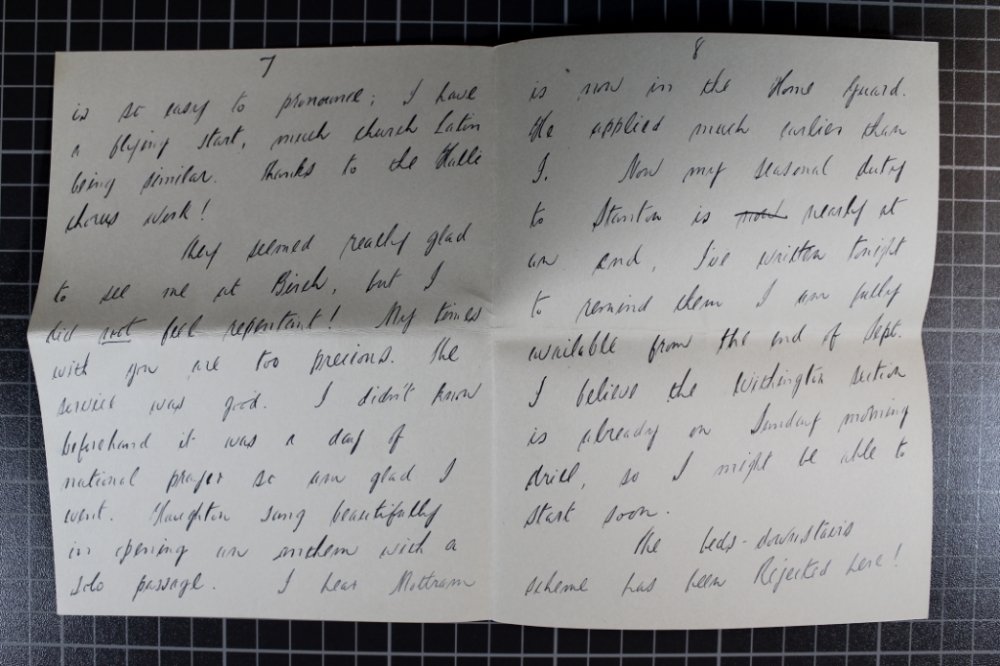 7
is so easy to pronounce; I have
a flying start, much church Latin
being similar. Thanks to the Hallé
chorus work!
They seemed really glad
to see me at Birch, but I
did not feel repentant! My times
with you are too precious. The
service was good. I didn't know
beforehand it was a day of
national prayer so am glad I
went. Haughton sang beautifully
in opening an anthem with a
solo passage. I hear Mottram
8
is now in the Home Guard.
He applied much earlier than
I. Now my seasonal duty
to Stanton is now nearly at
an end, I've written tonight
to remind them I am fully
available from the end of Sept.
I believe the Withington section
is already on Sunday morning
drill, so I might be able to
start soon.
The beds-downstairs
scheme has been Rejected here!